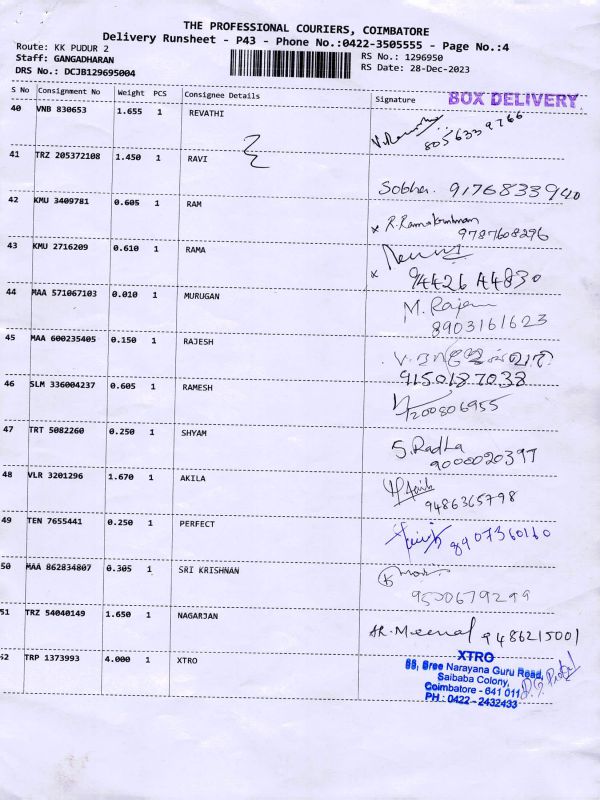 THE PROFESSIONAL COURIERS, COIMBATORE
Delivery Runsheet - P43 - Phone No.:0422-3505555 - Page No.:4
Route: KK PUDUR 2
Staff: GANGADHARAN
DRS No.: DCJB129695004
RS No.: 1296950
RS Date: 28-Dec-2023
S No Consignment No Weight PCS Consignee Details Signature BOX DELIVERY
40 VNB 830653 1.655 1 REVATHI
8056339766
41 TRZ 205372108 1.450 1 RAVI
Sobha. 9176833940
42 KMU 3409781 0.605 1 RAM
x R. Ramakrishnan
9787608296
43 KMU 2716209 0.610 1 RAMA
x
94426 44830
44 MAA 571067103 0.010 1 MURUGAN
M. Rajam
8903161623
45 MAA 600235405 0.150 1 RAJESH
9150187038
46 SLM 336004237 0.605 1 RAMESH
7200806955
47 TRT 5082260 0.250 1 SHYAM
S. Radha
9000020397
48 VLR 3201296 1.670 1 AKILA
9486365798
49 TEN 7655441 0.250 1 PERFECT
8907360160
50 MAA 862834807 0.305 1 SRI KRISHNAN
9500679299
51 TRZ 54040149 1.650 1 NAGARJAN
AR. Meenal 9486215001
52 TRP 1373993 4.000 1 XTRO
XTRO
88, Sree Narayana Guru Road,
Saibaba Colony,
Coimbatore - 641 011
PH : 0422 - 2432433